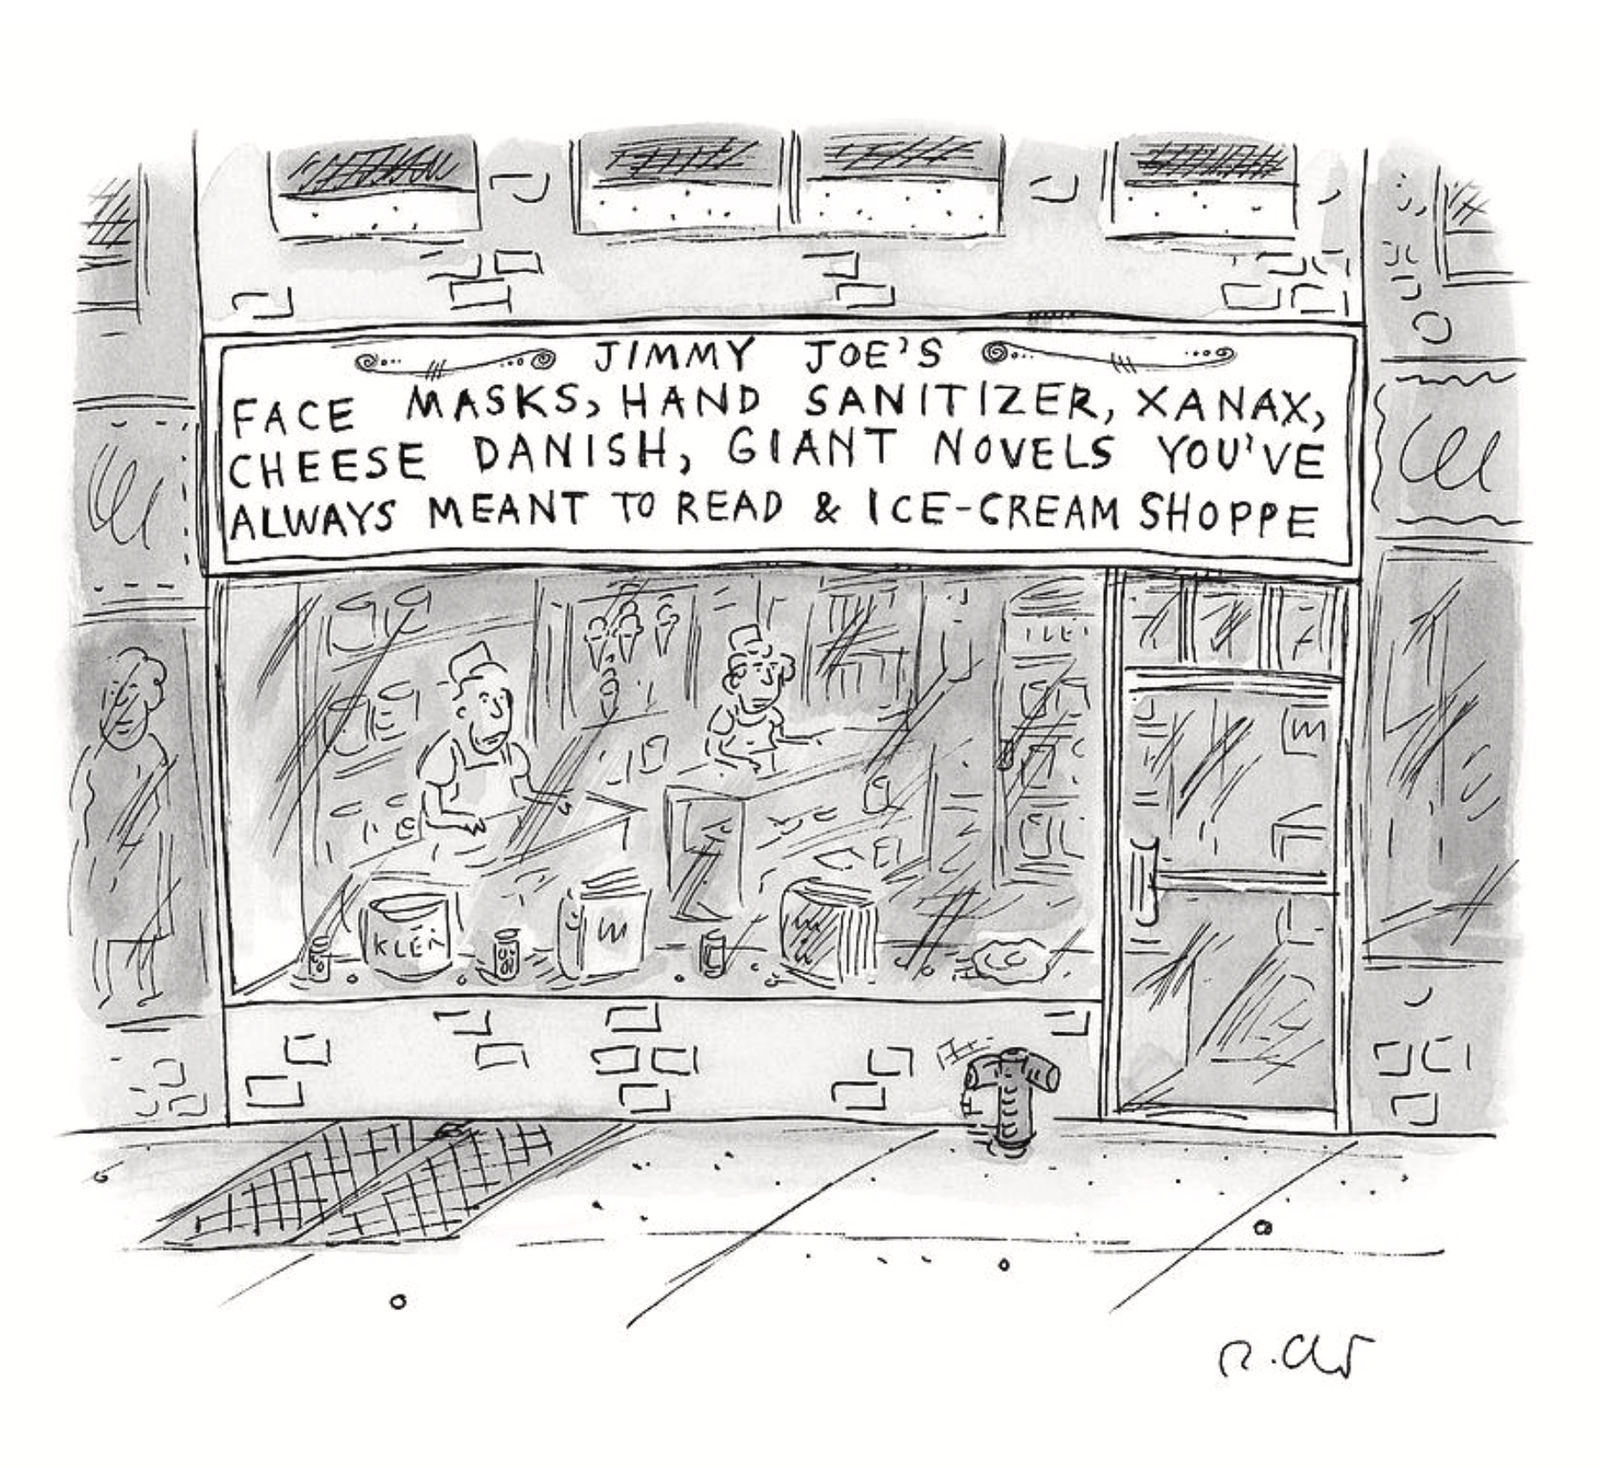 JIMMY JOE'S
FACE MASKS, HAND SANITIZER, XANAX,
CHEESE DANISH, GIANT NOVELS YOU'VE
ALWAYS MEANT TO READ & ICE-CREAM SHOPPE
R. Chast